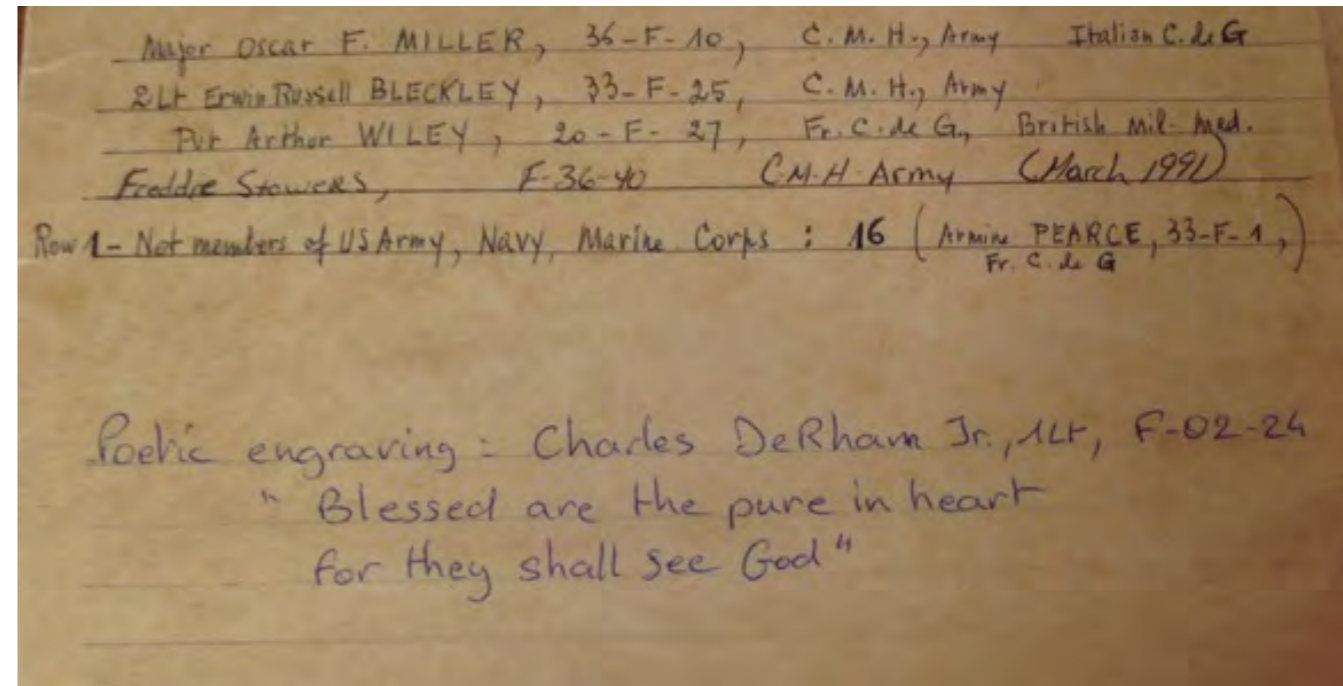 Major Oscar F. MILLER, 36-F-10, C. M. H., Army Italian C. de G
2Lt Erwin Russell BLECKLEY, 33-F-25, C. M. H., Army
Pvt Arthur WILEY, 20-F-27, Fr. C. de G., British Mil. Med.
Freddie Stowers, F-36-40 C.M.H Army (March 1991)
Row 1 - Not members of US Army, Navy, Marine Corps : 16 (Armine PEARCE, 33-F-1,)
Fr. C. de G
Poetic engraving : Charles DeRham Jr., 1Lt, F-02-24
" Blessed are the pure in heart
for they shall see God "